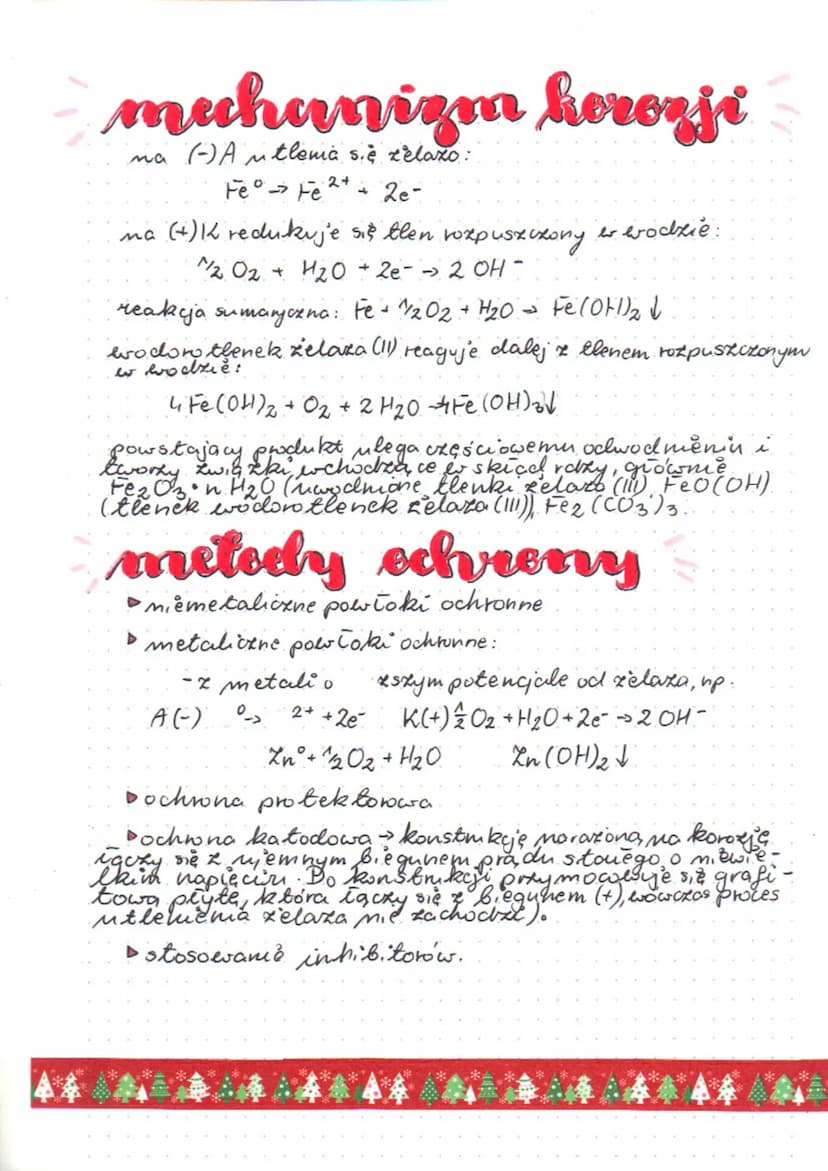 mechanizm korozji
na (-)A utlenia się żelazo:
Fe⁰ → Fe²⁺ + 2e-
na (+)K redukuje się tlen rozpuszczony w wodzie:
1/2 O2 + H2O + 2e- → 2 OH-
reakcja sumaryczna: Fe + 1/2 O2 + H2O → Fe(OH)2 ↓
wodorotlenek żelaza (II) reaguje dalej z tlenem rozpuszczonym
w wodzie:
4 Fe(OH)2 + O2 + 2 H2O → 4Fe(OH)3↓
powstający produkt ulega częściowemu odwodnieniu i
tworzy związki wchodzące w skład rdzy, głównie
Fe2O3 • n H2O (uwodnione tlenki żelaza (III), FeO(OH)
(tlenek wodorotlenek żelaza (III)), Fe2(CO3)3.
metody ochrony
▸ niemetaliczne powłoki ochronne
▸ metaliczne powłoki ochronne:
- z metali o zszym potencjale od żelaza, np.
A(-) ⁰→ ²⁺ +2e- K(+) 1/2 O2 + H2O + 2e- → 2 OH-
Zn⁰ + 1/2 O2 + H2O Zn(OH)2 ↓
▸ ochrona protektorowa
▸ ochrona katodowa → konstrukcję narażoną na korozję
łączy się z ujemnym biegunem prądu stałego o niewie-
lkim napięciu. Do konstrukcji przymocowuje się grafi-
tową płytę, która łączy się z biegunem (+), wówczas proces
utleniania żelaza nie zachodzi).
▸ stosowanie inhibitorów.